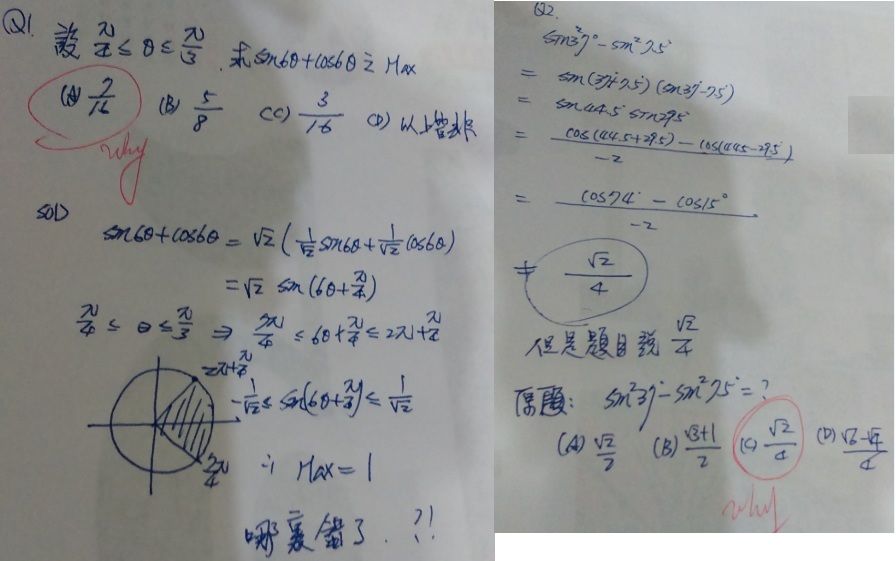 Q1.
設 π/4 ≤ θ ≤ π/3 . 求 sin6θ + cos6θ 之 Max
(A) 7/16 (B) 5/8 (C) 3/16 (D) 以上皆非
why
sol)
sin6θ + cos6θ = √2 ( 1/√2 sin6θ + 1/√2 cos6θ )
= √2 sin (6θ + π/4)
π/4 ≤ θ ≤ π/3 ⇒ 7π/4 ≤ 6θ + π/4 ≤ 2π + π/4
2π + π/4
-1/√2 ≤ sin(6θ + π/4) ≤ 1/√2
7π/4
∴ Max = 1
哪裏錯了. ?!
Q2.
sin²37° - sin²7.5°
= sin(37+7.5) (sin37-7.5)
= sin44.5 sin29.5
= cos(44.5+29.5) - cos(44.5-29.5) / -2
= cos74° - cos15° / -2
≠ √2/4
但是題目說 √2/4
原題: sin²37° - sin²7.5° = ?
(A) √2/2 (B) √3+1/2 (C) √2/4 (D)
why